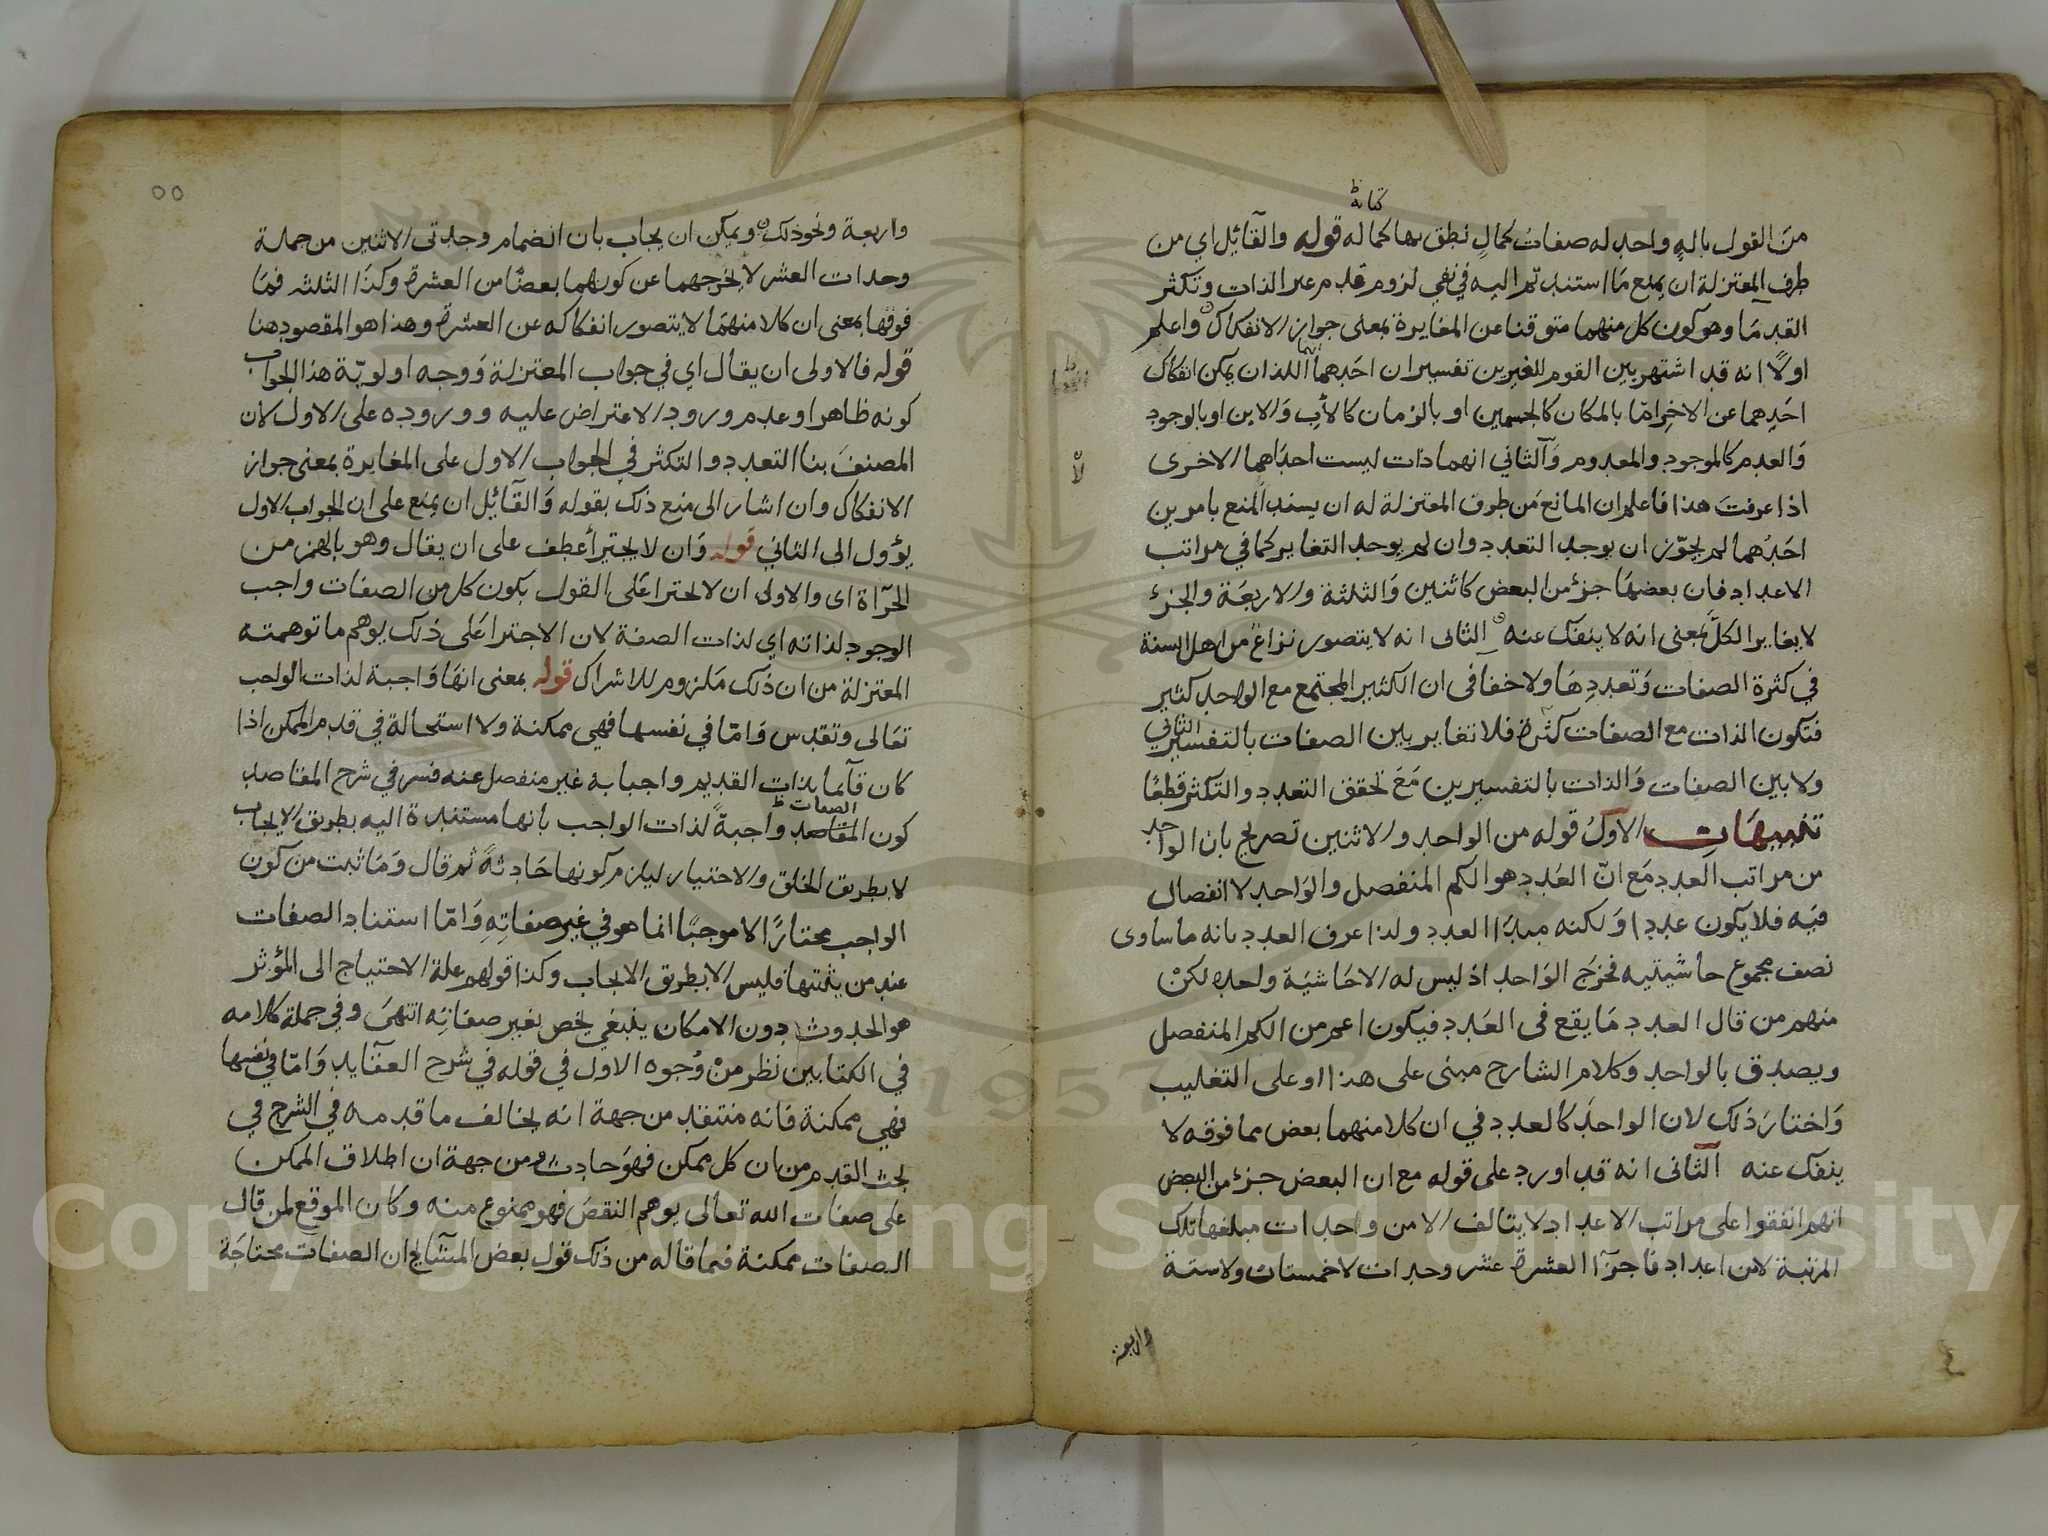 كتابه
من القول باله واحد له صفات كمال نطق بها كما له قوله والقائل اي من
طرف المعتزلة ان يمنع ما استند تم اليه في نفي لزوم قدم غير الذات وتكثر
القدما وهو كون كل منهما متوقفا عن المغايرة بمعنى جواز الانفكاك واعلم
اولا انه قد اشتهر بين القوم للغيرين تفسيران احدهما اللذان يمكن انفكاك
احدهما عن الاخر اما بالمكان كالجسمين او بالزمان كالاب والابن او بالوجود
والعدم كالموجود والمعدوم والثاني انهما ذات ليست احداهما الاخرى
اذا عرفت هذا فاعلم ان المانع من طرف المعتزلة له ان يسند المنع بامرين
احدهما لم يجوز ان يوجد التعدد وان لم يوجد التغاير كما في مراتب
الاعداد فان بعضها جزء من البعض كاثنين والثلثة والاربعة والجزء
لا يغاير الكل بمعنى انه لا ينفك عنه الثاني انه لا يتصور نزاع من اهل السنة
في كثرة الصفات وتعددها ولا خفا في ان الكثير المجتمع مع الواحد كثير
فتكون الذات مع الصفات كثرة فلا تغاير بين الصفات بالتفسير الثاني
ولا بين الصفات والذات بالتفسيرين مع تحقق التعدد والتكثر قطعا
تنبيهات الاول قوله من الواحد والاثنين تصريح بان الواحد
من مراتب العدد مع ان العدد هو الكم المنفصل والواحد لا انفصال
فيه فلا يكون عددا ولكنه مبدا العدد ولذا عرف العدد بانه ما ساوى
نصف مجموع حاشيتيه فخرج الواحد اذ ليس له الا حاشية واحدة لكن
منهم من قال العدد ما يقع في العدد فيكون اعم من الكم المنفصل
ويصدق بالواحد وكلام الشارح مبنى على هذا او على التغليب
واختار ذلك لان الواحد كالعدد في ان كلا منهما بعض مما فوقه لا
ينفك عنه الثاني انه قد اورد على قوله مع ان البعض جزء من البعض
انهم اتفقوا على مراتب الاعداد لا يتالف الا من واحدات مبلغها تلك
المرتبة لا من اعداد فاجزا العشرة عشر وحدات لا خمستان ولا ستة
واربعة
٥٥
واربعة ونحو ذلك ويمكن ان يجاب بان انضمام وحدتى الاثنين من جملة
وحدات العشر لا يخرجهما عن كونهما بعضا من العشرة وكذا الثلثه فما
فوقها بمعنى ان كلا منهما لا يتصور انفكاكه عن العشرة وهذا هو المقصود هنا
قوله فالاولى ان يقال اي في جواب المعتزلة ووجه اولوية هذا الجواب
كونه ظاهرا وعدم ورود الاعتراض عليه ووروده على الاول لان
المصنف بنا التعدد والتكثر في الجواب الاول على المغايرة بمعنى جواز
الانفكاك وان اشار الى منع ذلك بقوله والقائل ان يمنع على ان الجواب الاول
يؤول الى الثاني قوله وان لا يجترأ عطف على ان يقال وهو بالهمز من
الجرآة اى والاولى ان لا يجترا على القول بكون كل من الصفات واجب
الوجود لذاته اي لذات الصفة لان الاجترا على ذلك يوهم ما توهمته
المعتزلة من ان ذلك ملزوم للاشراك قوله بمعنى انها واجبة لذات الواجب
تعالى وتقدس واما في نفسها فهي ممكنة ولا استحالة في قدم الممكن اذا
كان قائما بذات القديم واجبا به غير منفصل عنه فسر في شرح المقاصد
كون المقاصد الصفات ظ واجبة لذات الواجب بانها مستندة اليه بطريق الايجاب
لا بطريق الخلق والاختيار ليلزم كونها حادثة ثم قال وما ثبت من كون
الواجب مختارا لا موجبا انما هو في غير صفاته واما استناد الصفات
عند من يثبتها فليس الا بطريق الايجاب وكذا قولهم علة الاحتياج الى المؤثر
هو الحدوث دون الامكان ينبغي يخص بغير صفاته انتهى وفي جملة كلامه
في الكتابين نظر من وجوه الاول في قوله في شرح العقايد واما في نفسها
فهي ممكنة فانه منتقد من جهة انه يخالف ما قدمه في الشرح في
بحث القدم من ان كل ممكن فهو حادث ومن جهة ان اطلاق الممكن
على صفات الله تعالى يوهم النقص فهو ممنوع منه وكان الموقع لمن قال
الصفات ممكنة فما قاله من ذلك قول بعض المشايخ ان الصفات محتاجة